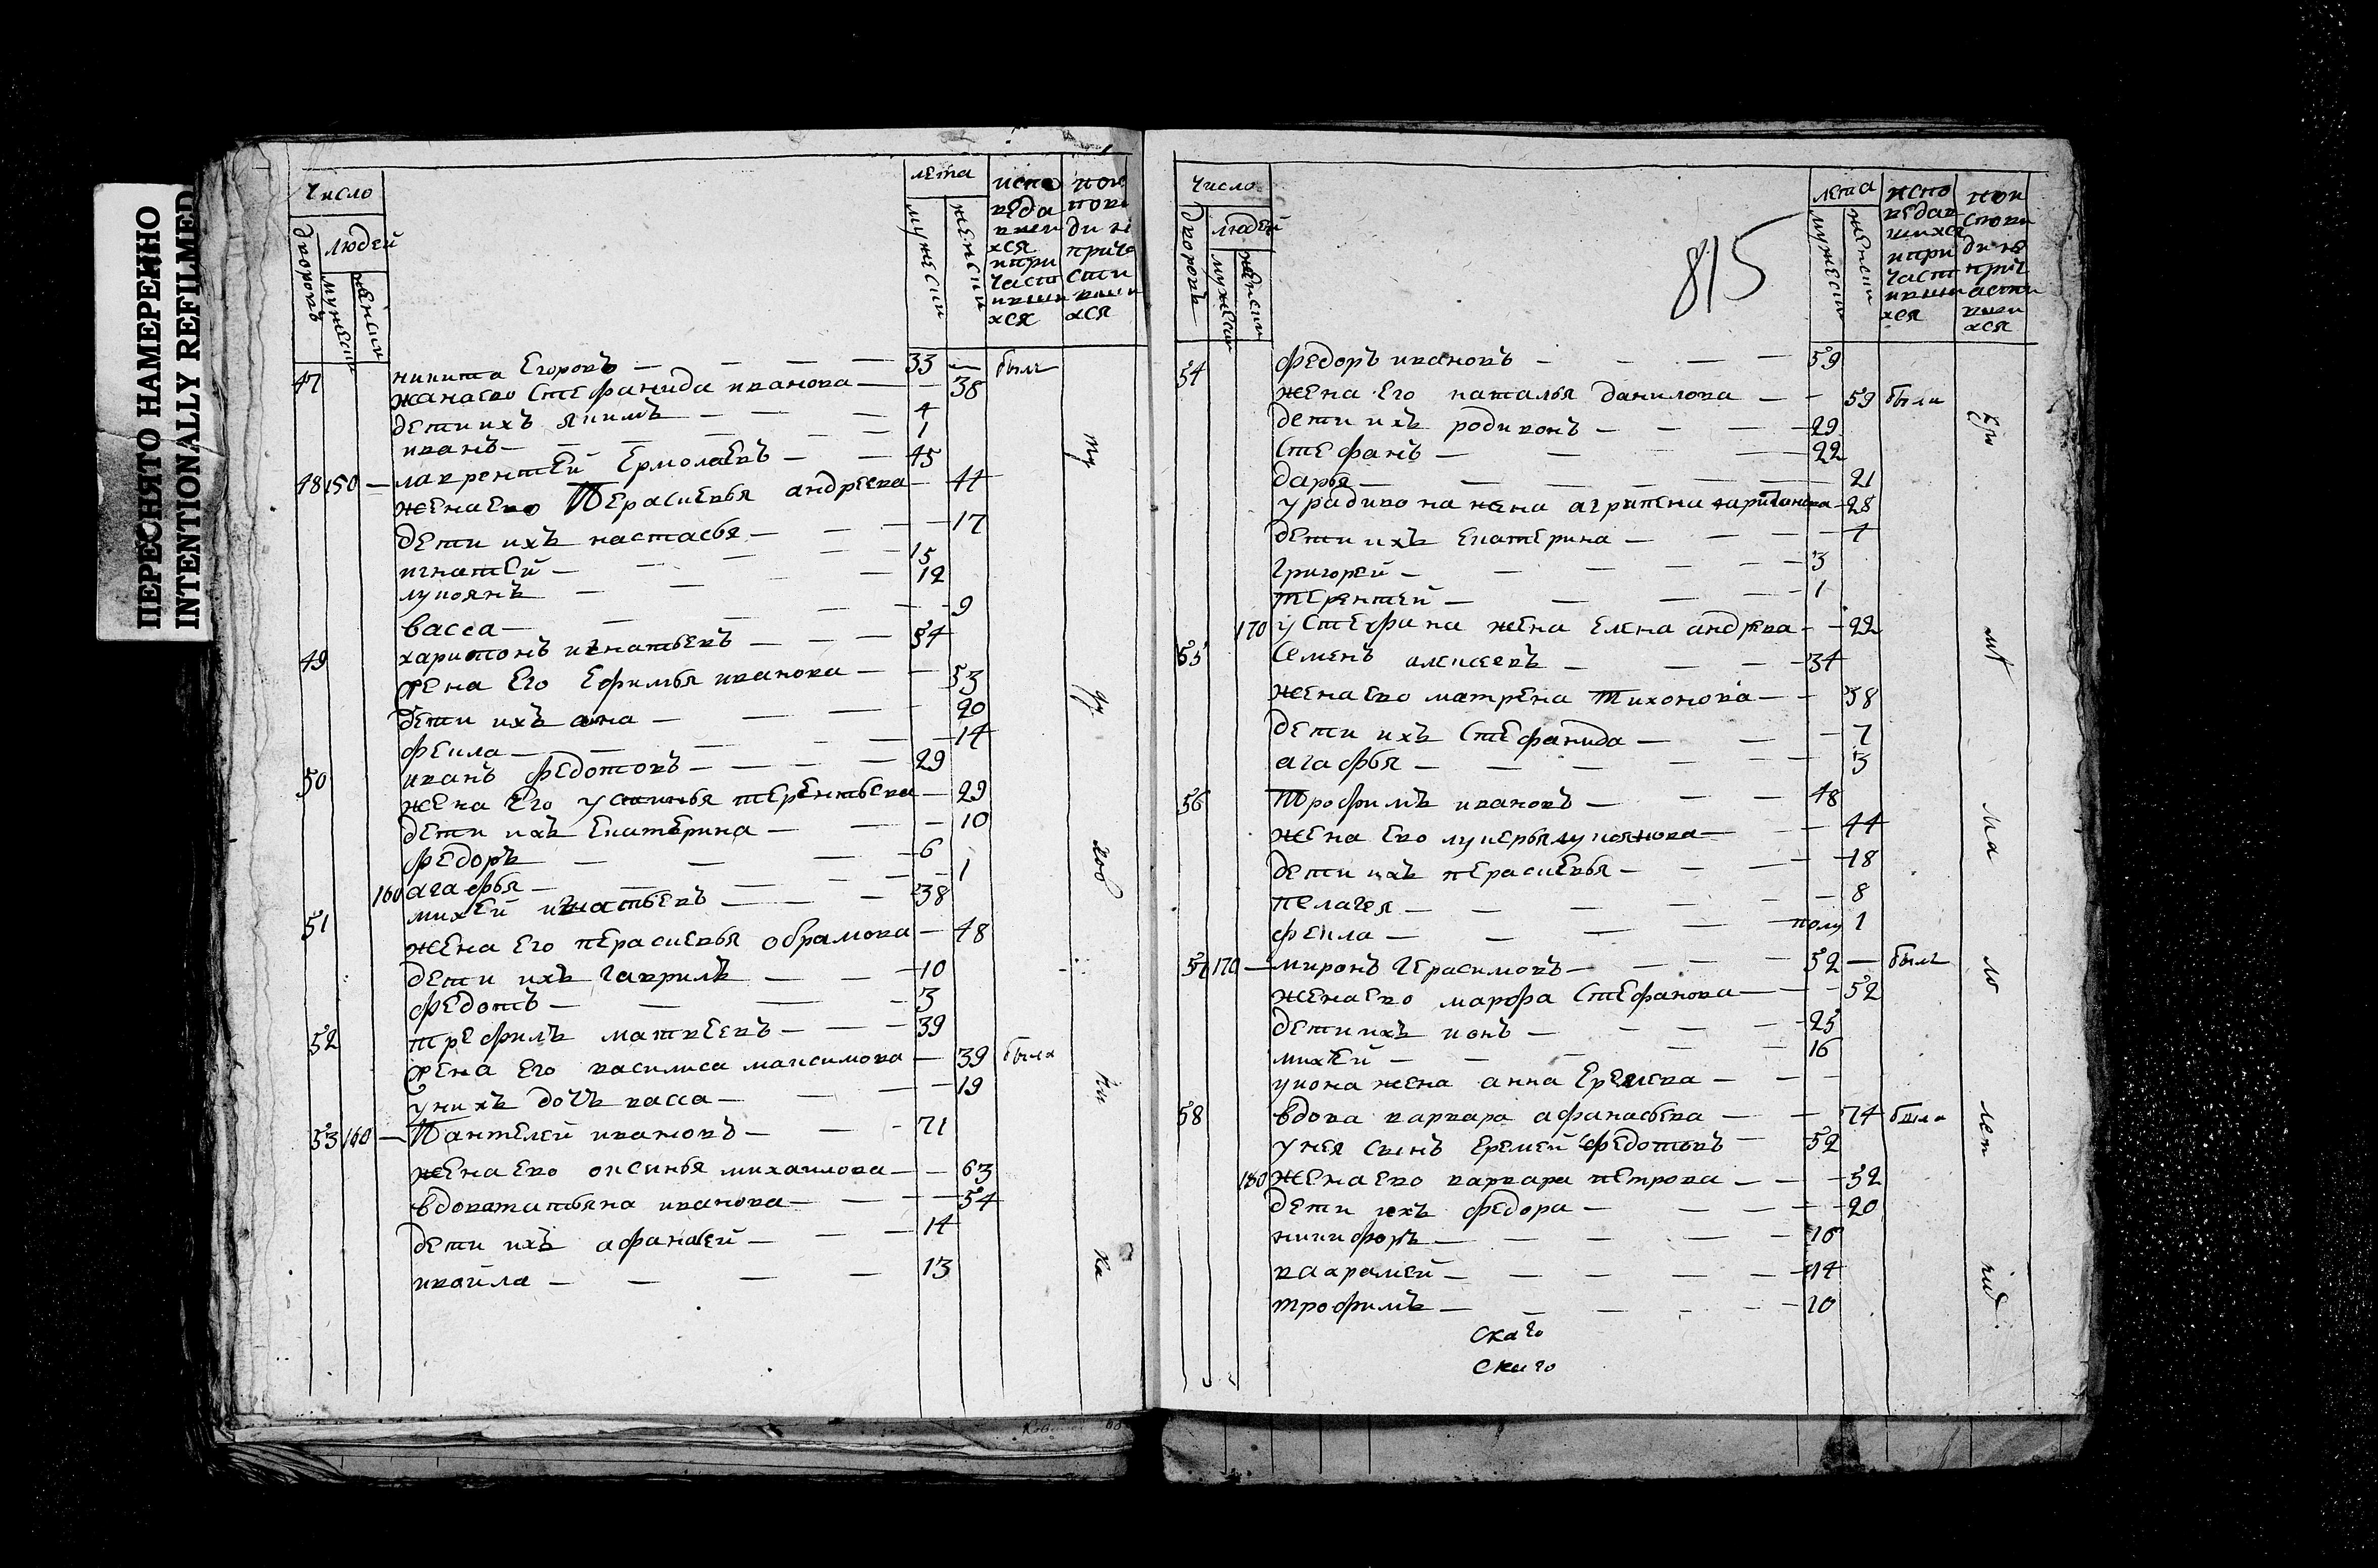 ПЕРЕСНЯТО НАМЕРЕННО
INTENTIONALLY REFILMED
Число
лета
дворовъ
людей
мужески
женски
мужески
женски
испо
веда
вши
хся
и при
части
вши
хся
47 никита Егоровъ — 33 — был
жана ево Стефанида иванова — 38
дети ихъ якимъ — 4
иванъ — 1
48 150 — лаврентей Ермолаевъ — 45
жена Ево Перасковья андреева — 44
дети ихъ настасья — 17
игнатей — 15
лукоянъ — 12
васса — 9
49 харитонъ игнатьевъ — 54
жена Его Ефимья иванова — 53
дети ихъ анна — 20
фекла — 14
50 иванъ федотовъ — 29
жена Его устинья терентьева — 29
дети ихъ Екатерина — 10
федоръ — 6
160 агафья — 1
51 михей игнатьевъ — 38
жена Его перасковья обрамова — 48
дети ихъ гаврилъ — 10
федотъ — 3
52 трефилъ матвеевъ — 39
жена Его василиса максимова — 39 была
у нихъ дочь васса — 19
53 160 — Пантелей ивановъ — 71
жена Ево оксинья михаилова — 63
вдова татьяна иванова — 54
дети ихъ афанасей — 14
ивайла — 13
815
Число
лета
дворовъ
людей
мужески
женски
мужески
женски
испо
ведав
шихся
и при
части
вши
хся
54 федоръ ивановъ — 59
жена Его наталья данилова — 59 были
дети ихъ родивонъ — 29
Стефанъ — 22
дарья — 21
у радивона жена агрипена харитонова — 28
дети ихъ Екатерина — 7
григорей — 3
терентей — 1
170 у Стефана жена Елена андреева — 22
55 Семенъ алексеевъ — 34
жена ево матрена Тихонова — 38
дети ихъ Стефанида — 7
агафья — 3
56 Трофимъ ивановъ — 48
жена Ево лукерья лукоянова — 44
дети ихъ перасковья — 18
пелагея — 8
фекла — полу 1
57 170 — миронъ Герасимовъ — 52 — былъ
жена ево марфа Стефанова — 52
дети ихъ ионъ — 25
михей — 16
у иона жена анна Еремеева —
58 вдова варвара афанасьева — 74 была
у нея сынъ Еремей федотовъ 52
180 жена ево варвара петрова — 52
дети ихъ федора — 20
никифоръ — 16
варфамей — 14
трофимъ — 10